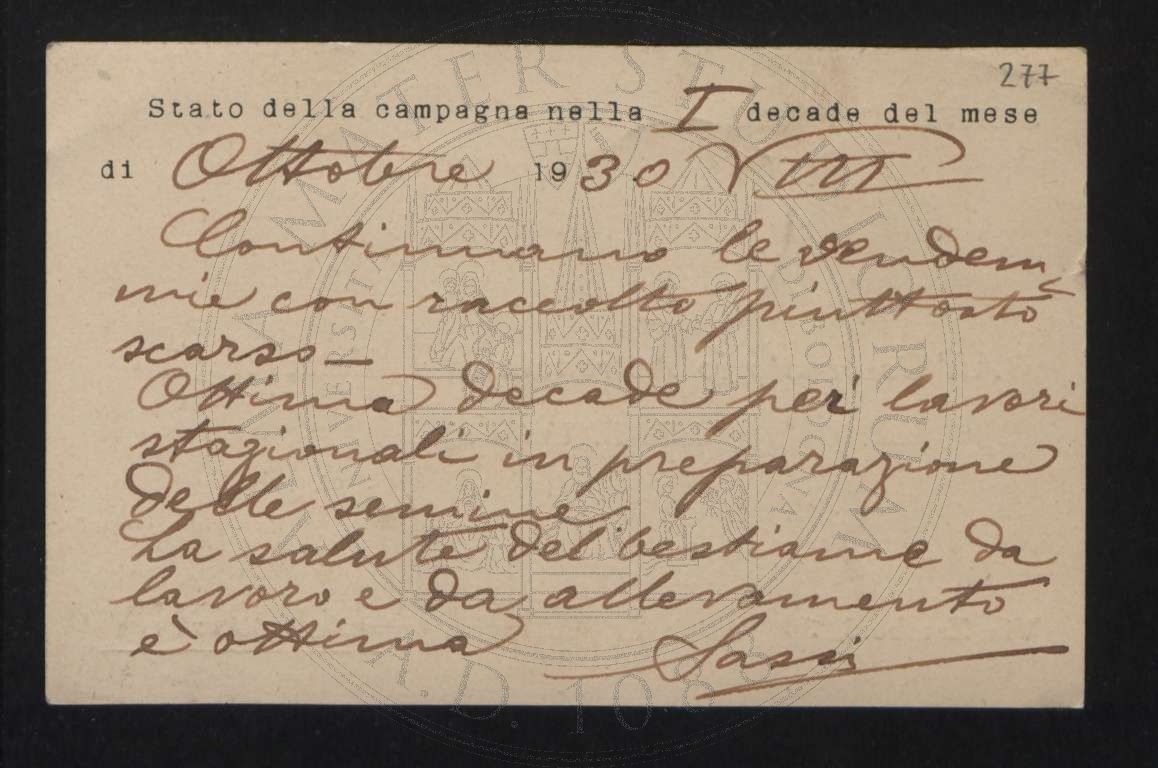 277
Stato della campagna nella I decade del mese
di Ottobre 1930 VIII
Continuano le vendem
mie con raccolto piuttosto
scarso –
Ottima decade pei lavori
stagionali in preparazione
delle semine
La salute del bestiame da
lavoro e da allevamento
è ottima
Sassi
ALMA MATER STUDIORUM
UNIVERSITÀ DI BOLOGNA
A.D. 1088